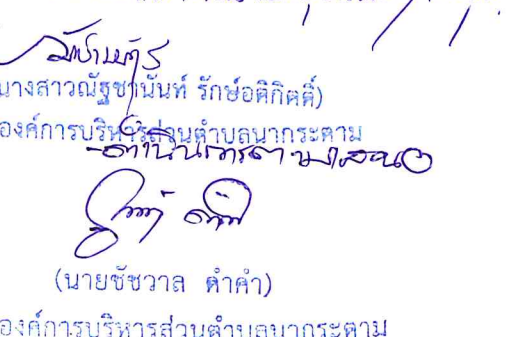 นางสาวณัฐชานันท์ รักษ์อติกิตติ์)
องค์การบริหารส่วนตำบลนากระตาม
-ดำเนินการตามเสนอ
(นายชัชวาล ดำคำ)
องค์การบริหารส่วนตำบลนากระตาม